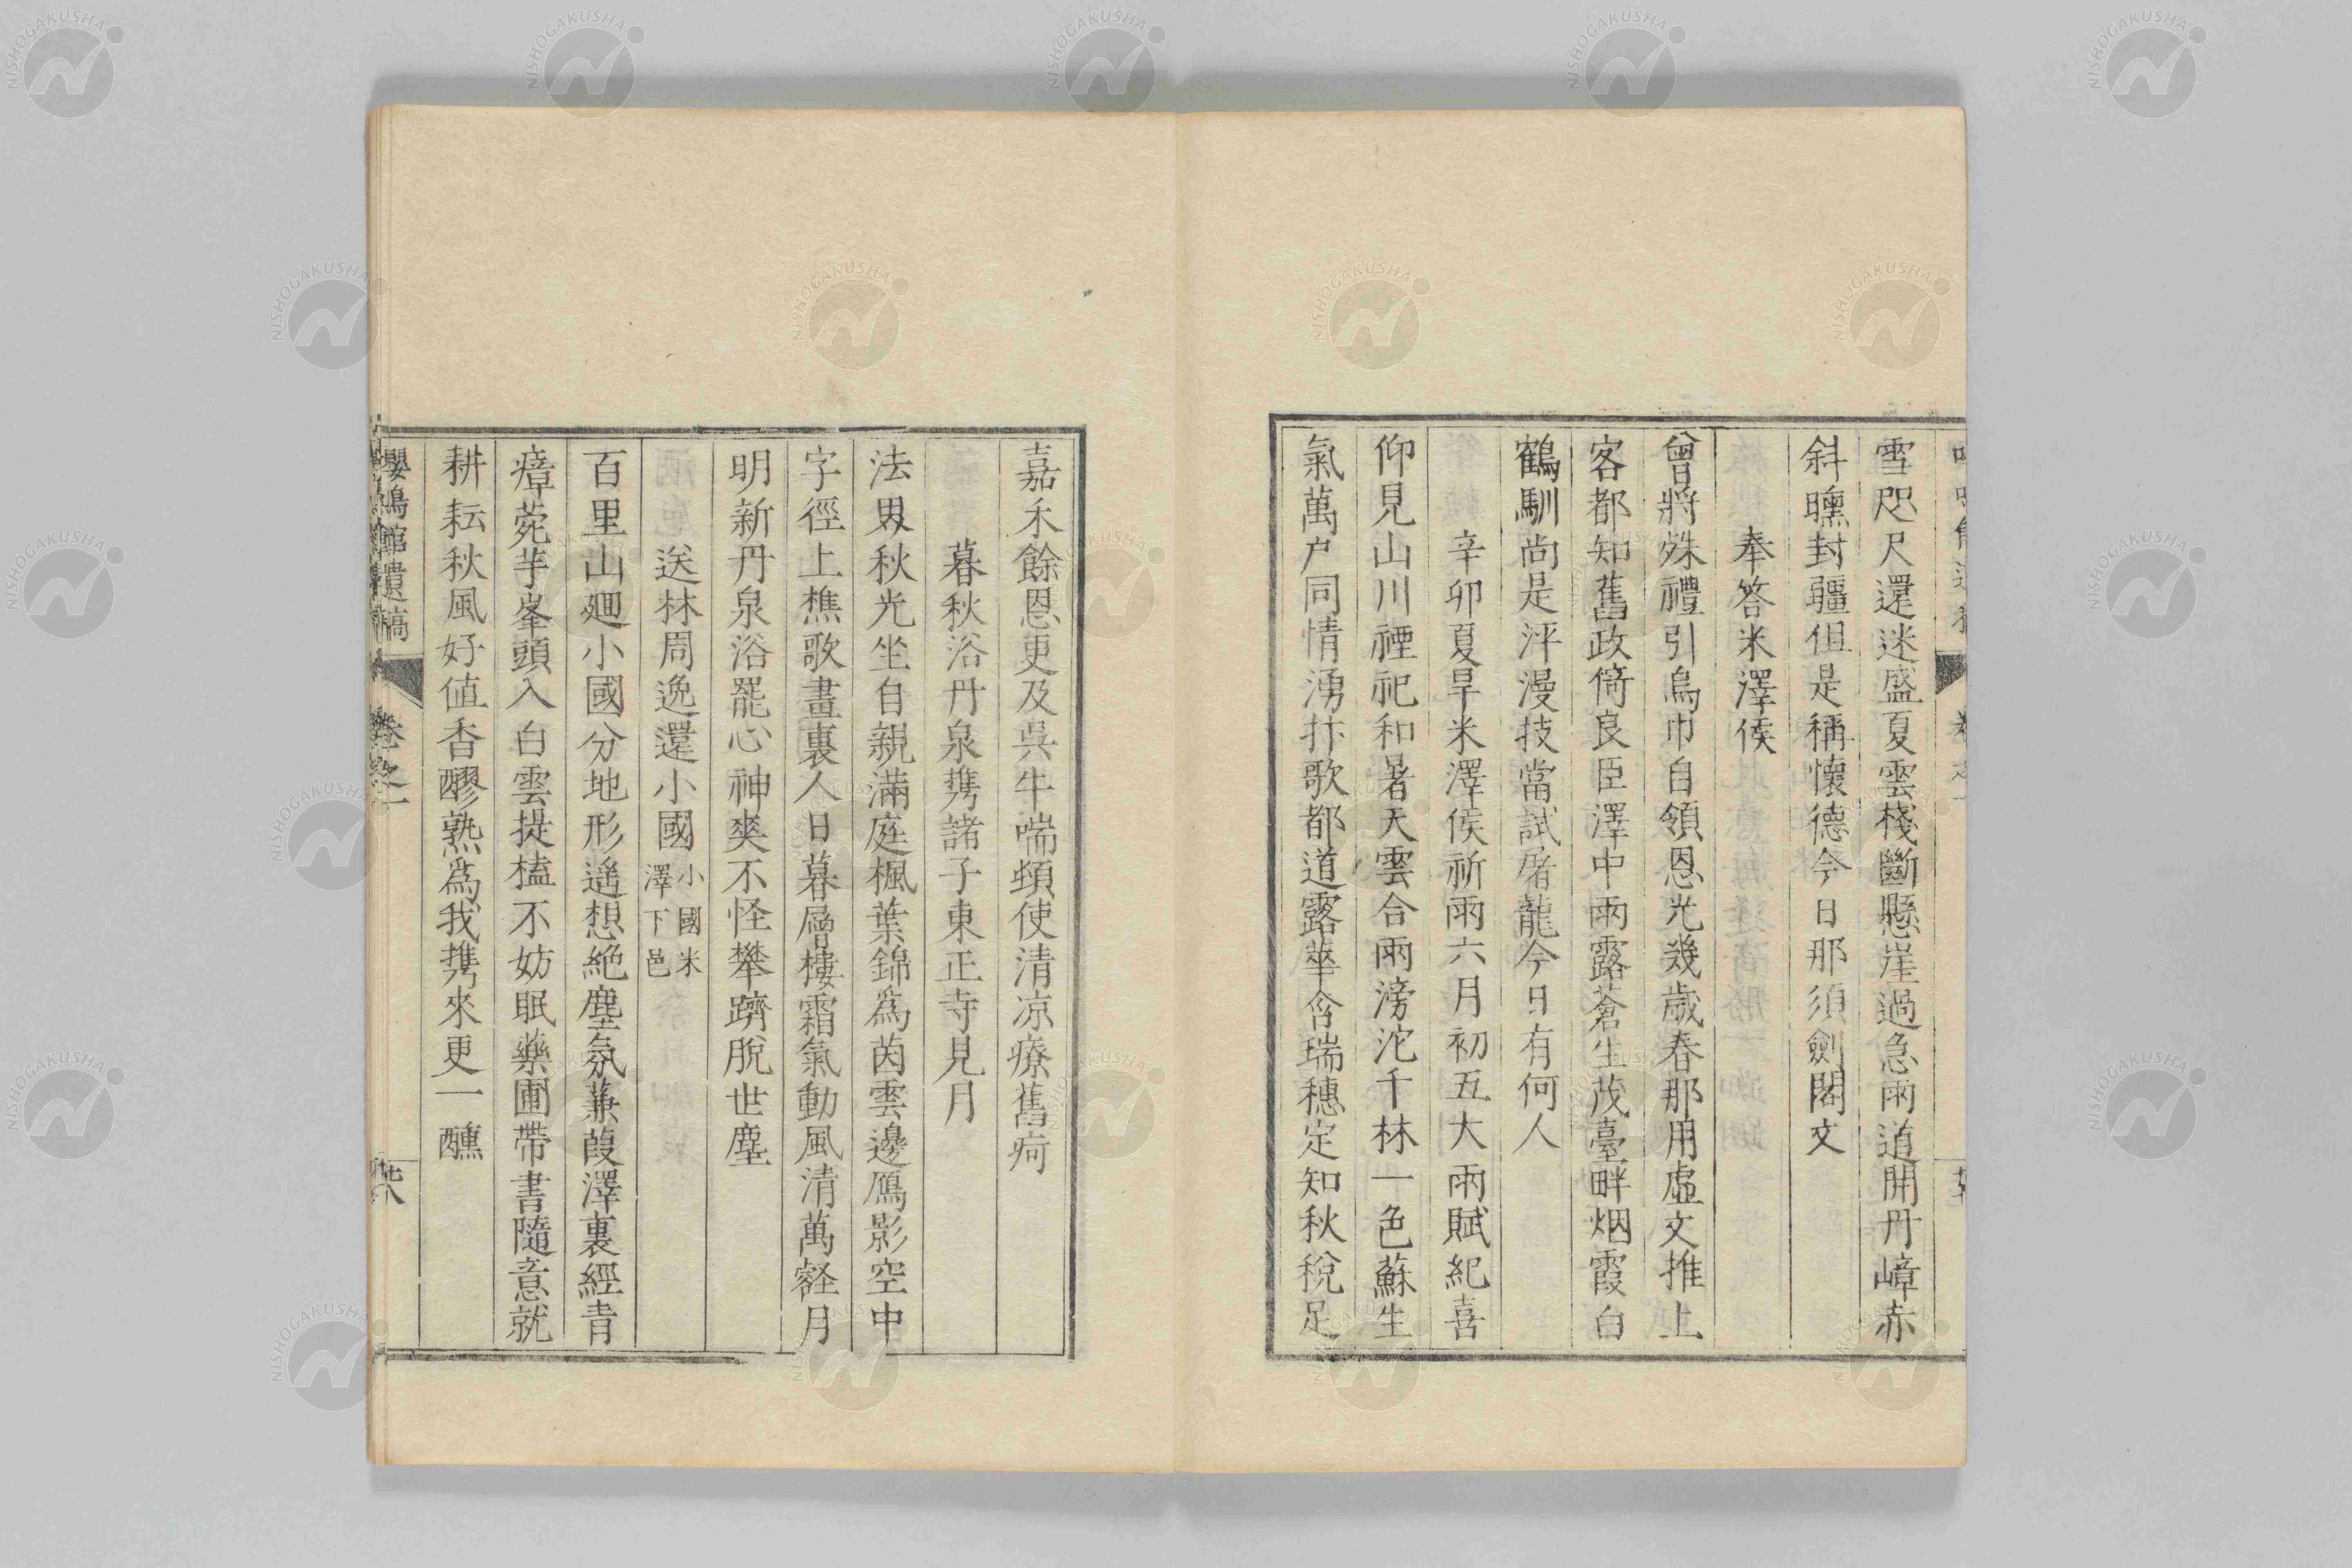 雪咫尺還迷盛夏雲棧斷懸崖過急雨道開丹嶂赤
斜曛封疆但是稱懷德今日那須劍閣文
奉答米澤侯
曾將殊禮引烏巾自領恩光幾歲春那用虛文推上
客都知舊政倚良臣澤中雨露蒼生茂臺畔烟霞白
鶴馴尚是泙漫技當試屠龍今日有何人
辛卯夏旱米澤侯祈雨六月初五大雨賦紀喜
仰見山川禋祀和暑天雲合雨滂沱千林一色蘇生
氣萬戶同情湧抃歌都道露華含瑞穗定知秋稅足
嘉禾餘恩更及吳牛喘頓使清凉療舊疴
暮秋浴丹泉携諸子東正寺見月
法界秋光坐自親滿庭楓葉錦爲茵雲邊鴈影空中
字徑上樵歌畫裏人日暮層樓霜氣動風清萬壑月
明新丹泉浴罷心神爽不怪攀躋脫世塵
送林周逸還小國
小國米
澤下邑
百里山廻小國分地形遙想絕塵氛蒹葭澤裏經青
瘴菀芋峯頭入白雲提榼不妨眠藥圃帶書隨意就
耕耘秋風好值香醪熟爲我携來更一醺
嚶鳴館遺稿
卷之一
廿八
NISHOGAKUSHA